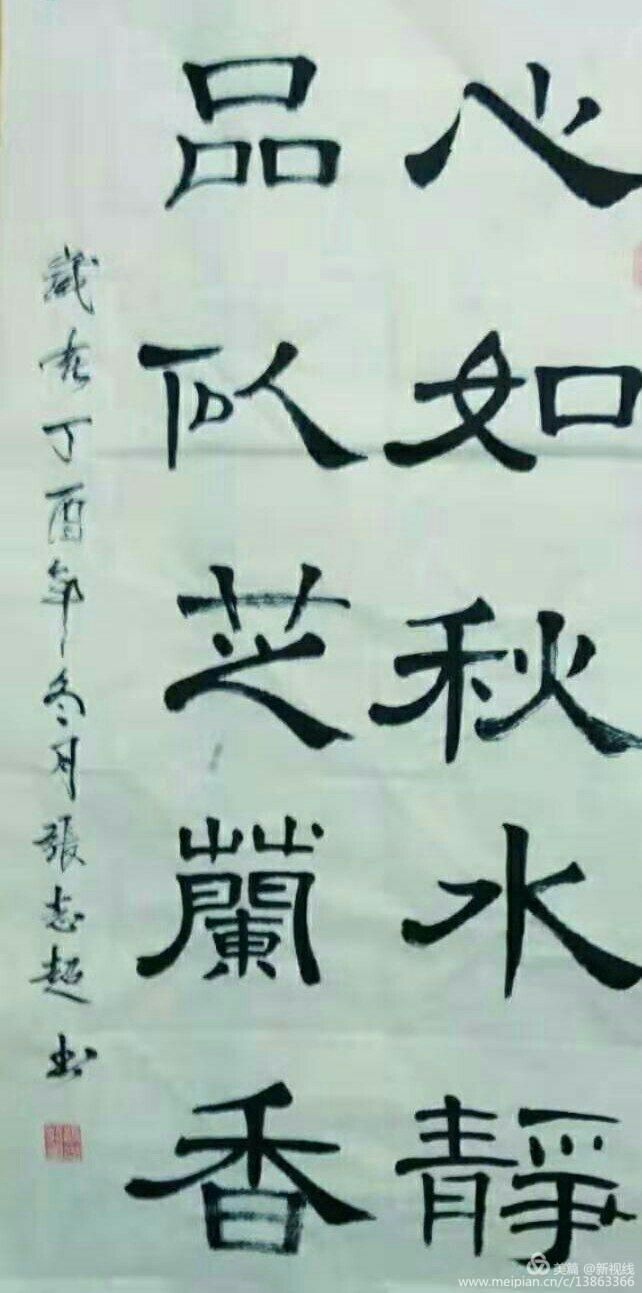 心如秋水靜
品似芝蘭香
歲在丁酉年冬月張志超书
美篇 @新视线
www.meipian.cn/c/13863366